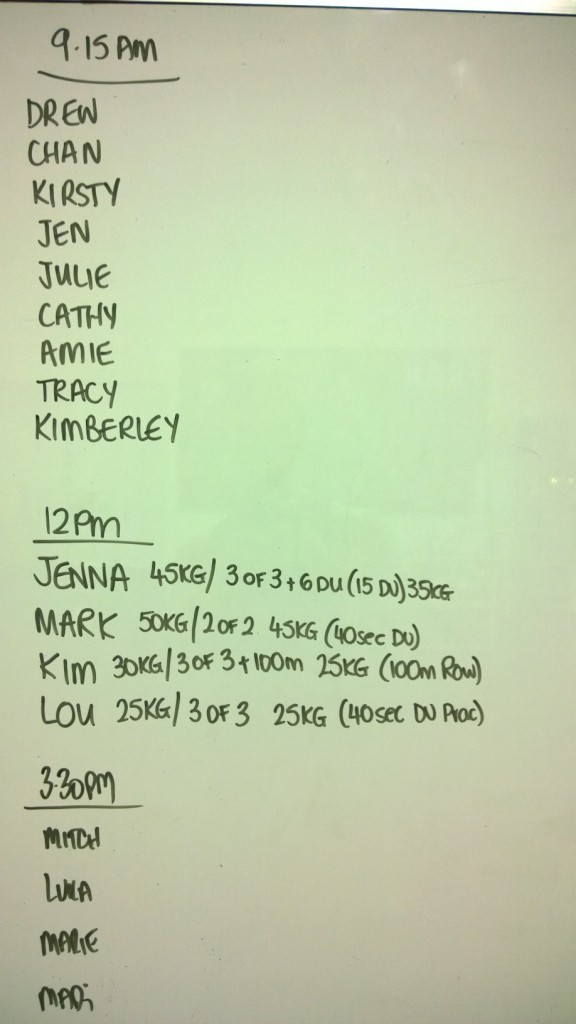 9.15AM
DREW
CHAN
KIRSTY
JEN
JULIE
CATHY
AMIE
TRACY
KIMBERLEY
12PM
JENNA 45KG/ 3 OF 3 + 6 DU (15 DU) 35KG
MARK 50KG/ 2 OF 2 45KG (40sec DU)
KIM 30KG/ 3 OF 3 + 100m 25KG (100m Row)
LOU 25KG/ 3 OF 3 25KG (40sec DU Prac)
3.30PM
MITCH
LUKA
MARIE
MADi